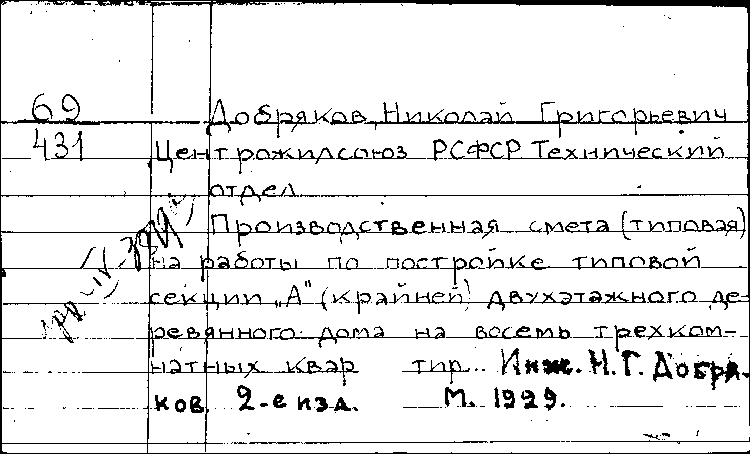 69
431
Добряков, Николай Григорьевич
Центрожилсоюз РСФСР. Технический
отдел
Производственная смета (типовая)
на работы по постройке типовой
секции „А" (крайней) двухэтажного де-
ревянного дома на восемь трехком-
натных квар тир.. Инж. Н. Г. Добря-
ков. 2-е изд. М. 1929.